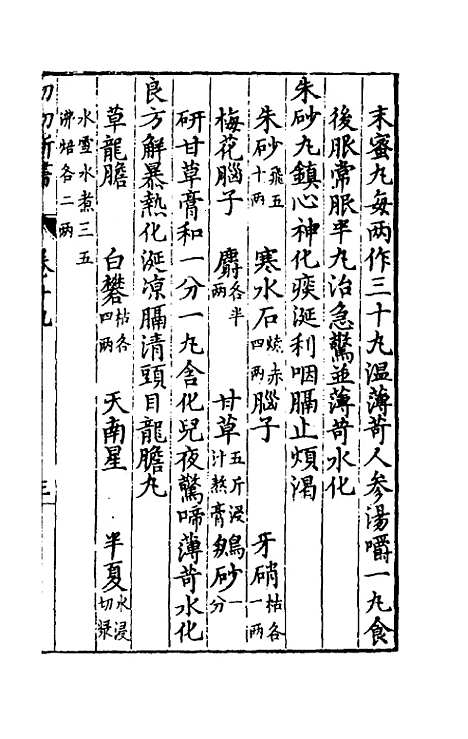 末蜜九每兩作三十九温薄苛人參湯嚼一九食
後服常服半九治急驚並薄苛水化
朱砂九鎮心神化痰涎利咽膈止煩渴
朱砂飛五十兩 寒水石煉赤四兩 腦子 牙硝枯各一兩
梅花腦子 麝各半兩 甘草五斤浸汁熬膏 鵬砂一分
研甘草膏和一分一九含化兒夜驚啼薄苛水化
良方解暴熱化涎凉膈清頭目龍膽九
草龍膽 白礬枯各四兩 天南星 半夏水浸切
水雪水煮三五
沸焙各二兩
卷十九
三